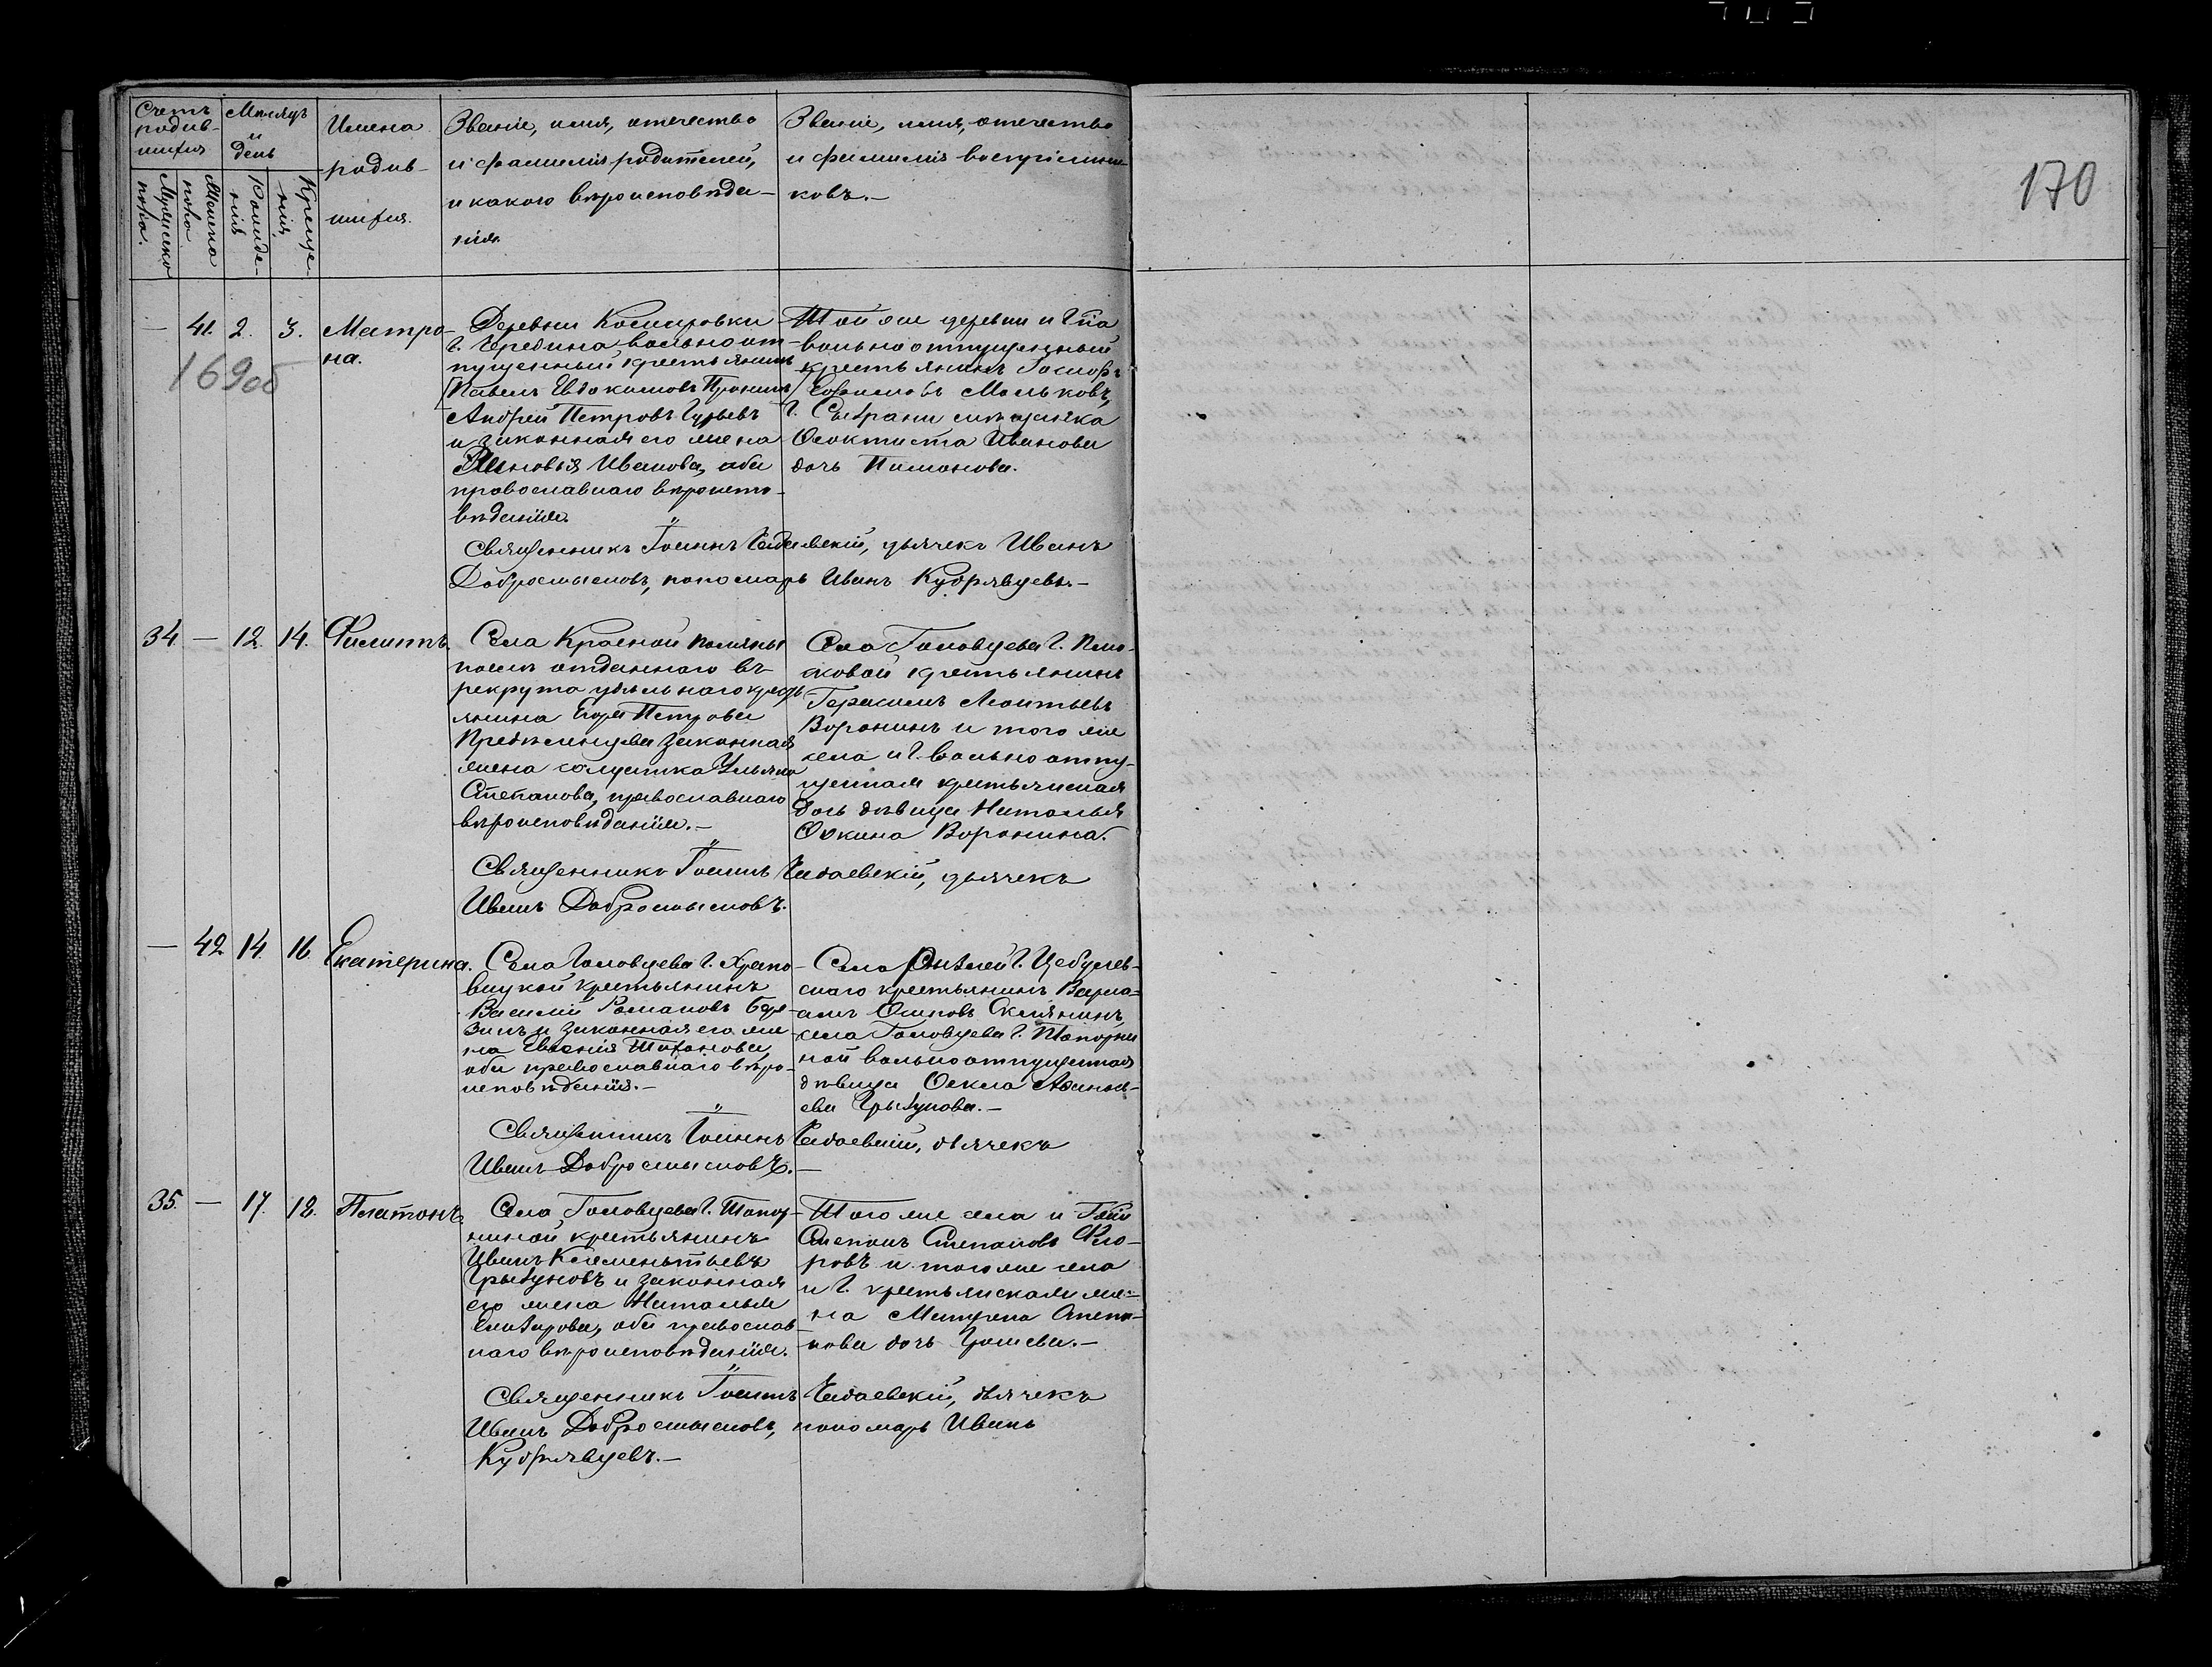 170
Счетъ родив-шихся
Мѣсяцъ и день
Имена родив-шихся.
Званіе, имя, отечество
и фамилія родителей,
и какого вѣроисповѣда-
нія.
Званіе, имя, отечество
и фамилія воспріемни-
ковъ.—
Мужеска пола.
Женска пола
Рожде-нія
Креще-нія.
— 41. 2. 3. Матро-
на.
169об
Деревни
вольноот-
пущенный крестьянинъ
Павелъ Евдокимовъ
Андрей Петровъ Гурьевъ
и законная его жена
Зиновья Иванова, оба
православнаго вѣроиспо-
вѣданія.
Той же деревни и
вольноотпущенный
крестьянинъ
Мальковъ,
Г. Сызрани мѣщанка
Ѳеоктиста Иванова
дочь Пимонова.
Священникъ Іоаннъ дьячекъ Иванъ
Добросмысловъ, пономарь Иванъ Кудрявцевъ.—
34. — 12. 14. Филиппъ.
Села Красной Поляны
послѣ отданнаго въ
рекрута удѣльнаго кресть-
янина Егора Петрова
законная
жена солдатка Ульяна
Степанова, православнаго
вѣроисповѣданія.—
Села Головцева Г.
крестьянинъ
Герасимъ Леонтьевъ
Воронинъ и того же
села и Г. вольноотпу-
щенная крестьянская
дочь дѣвица Наталья
Воронина.
Священникъ Іоаннъ дьячекъ
Иванъ Добросмысловъ.
— 42. 14. 16. Екатерина.
Села Головцева Г. Храпо-
вицкой крестьянинъ
Василій Романовъ
и законная его же-
на Евгенія
оба православнаго вѣро-
исповѣданія.—
Села
крестьянинъ
Осиповъ
села Головцева Г. Топорни-
ной вольноотпущенная
дѣвица Ѳекла Аѳанась-
ева Грызунова.—
Священникъ Іоаннъ дьячекъ
Иванъ Добросмысловъ.—
35. — 17. 18. Платонъ.
Села Головцева Г. Топор-
ниной крестьянинъ
Иванъ Клементьевъ
Грызуновъ и законная
его жена Наталья
Елизарова, оба православ-
наго вѣроисповѣданія.
Того же села и
Степанъ Степановъ Фло-
ровъ и того же села
и Г. крестьянская же-
на Матрена Степа-
нова дочь
Священникъ Іоаннъ дьячекъ
Иванъ Добросмысловъ, пономарь Иванъ
Кудрявцевъ.—